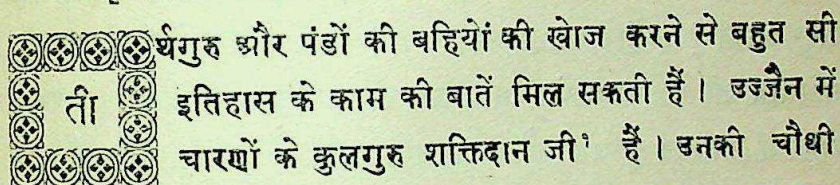 तीर्थगुरु और पंडों की बहियों की खोज करने से बहुत सी
इतिहास के काम की बातें मिल सकती हैं। उज्जैन में
चारणों के कुलगुरु शक्तिदान जी१ हैं। उनकी चौथी